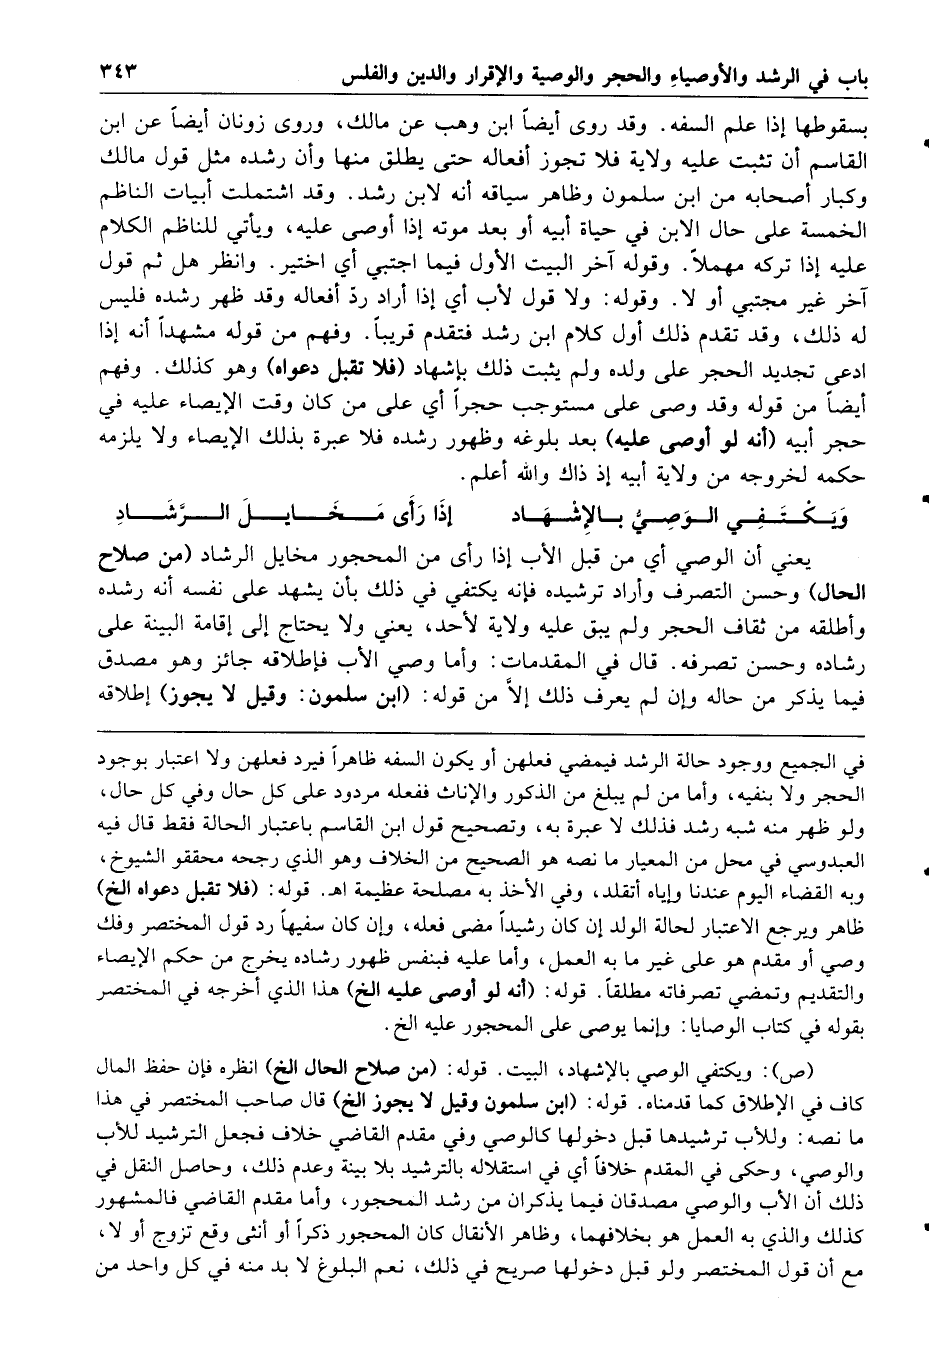 باب في الرشد والأوصياء والحجر والوصية والإقرار والدين والفلس ٣٤٣
بسقوطها إذا علم السفه. وقد روى أيضاً ابن وهب عن مالك، وروى زونان أيضاً عن ابن
القاسم أن تثبت عليه ولاية فلا تجوز أفعاله حتى يطلق منها وأن رشده مثل قول مالك
وكبار أصحابه من ابن سلمون وظاهر سياقه أنه لابن رشد. وقد اشتملت أبيات الناظم
الخمسة على حال الابن في حياة أبيه أو بعد موته إذا أوصى عليه، ويأتي للناظم الكلام
عليه إذا تركه مهملاً. وقوله آخر البيت الأول فيما اجتبي أي اختير. وانظر هل ثم قول
آخر غير مجتبي أو لا. وقوله: ولا قول لأب أي إذا أراد ردّ أفعاله وقد ظهر رشده فليس
له ذلك، وقد تقدم ذلك أول كلام ابن رشد فتقدم قريباً. وفهم من قوله مشهداً أنه إذا
ادعى تجديد الحجر على ولده ولم يثبت ذلك بإشهاد (فلا تقبل دعواه) وهو كذلك. وفهم
أيضاً من قوله وقد وصى على مستوجب حجراً أي على من كان وقت الإيصاء عليه في
حجر أبيه (أنه لو أوصى عليه) بعد بلوغه وظهور رشده فلا عبرة بذلك الإيصاء ولا يلزمه
حكمه لخروجه من ولاية أبيه إذ ذاك والله أعلم.
وَيَكْتَفِي الوَصِيُّ بالإِشْهَادِ إذَا رَأَى مَخَايلَ الرَّشَادِ
يعني أن الوصي أي من قبل الأب إذا رأى من المحجور مخايل الرشاد (من صلاح
الحال) وحسن التصرف وأراد ترشيده فإنه يكتفي في ذلك بأن يشهد على نفسه أنه رشده
وأطلقه من ثقاف الحجر ولم يبق عليه ولاية لأحد، يعني ولا يحتاج إلى إقامة البينة على
رشاده وحسن تصرفه. قال في المقدمات: وأما وصي الأب فإطلاقه جائز وهو مصدق
فيما يذكر من حاله وإن لم يعرف ذلك إلاَّ من قوله: (ابن سلمون: وقيل لا يجوز) إطلاقه
في الجميع ووجود حالة الرشد فيمضي فعلهن أو يكون السفه ظاهراً فيرد فعلهن ولا اعتبار بوجود
الحجر ولا بنفيه، وأما من لم يبلغ من الذكور والإناث ففعله مردود على كل حال وفي كل حال،
ولو ظهر منه شبه رشد فذلك لا عبرة به، وتصحيح قول ابن القاسم باعتبار الحالة فقط قال فيه
العبدوسي في محل من المعيار ما نصه هو الصحيح من الخلاف وهو الذي رجحه محققو الشيوخ،
وبه القضاء اليوم عندنا وإياه أتقلد، وفي الأخذ به مصلحة عظيمة اهـ. قوله: (فلا تقبل دعواه الخ)
ظاهر ويرجع الاعتبار لحالة الولد إن كان رشيداً مضى فعله، وإن كان سفيهاً رد قول المختصر وفك
وصي أو مقدم هو على غير ما به العمل، وأما عليه فبنفس ظهور رشاده يخرج من حكم الإيصاء
والتقديم وتمضي تصرفاته مطلقاً. قوله: (أنه لو أوصى عليه الخ) هذا الذي أخرجه في المختصر
بقوله في كتاب الوصايا: وإنما يوصى على المحجور عليه الخ.
(ص): ويكتفي الوصي بالإشهاد، البيت. قوله: (من صلاح الحال الخ) انظره فإن حفظ المال
كاف في الإطلاق كما قدمناه. قوله: (ابن سلمون وقيل لا يجوز الخ) قال صاحب المختصر في هذا
ما نصه: وللأب ترشيدها قبل دخولها كالوصي وفي مقدم القاضي خلاف فجعل الترشيد للأب
والوصي، وحكى في المقدم خلافاً أي في استقلاله بالترشيد بلا بينة وعدم ذلك، وحاصل النقل في
ذلك أن الأب والوصي مصدقان فيما يذكران من رشد المحجور، وأما مقدم القاضي فالمشهور
كذلك والذي به العمل هو بخلافهما، وظاهر الأنقال كان المحجور ذكراً أو أنثى وقع تزوج أو لا،
مع أن قول المختصر ولو قبل دخولها صريح في ذلك، نعم البلوغ لا بد منه في كل واحد من